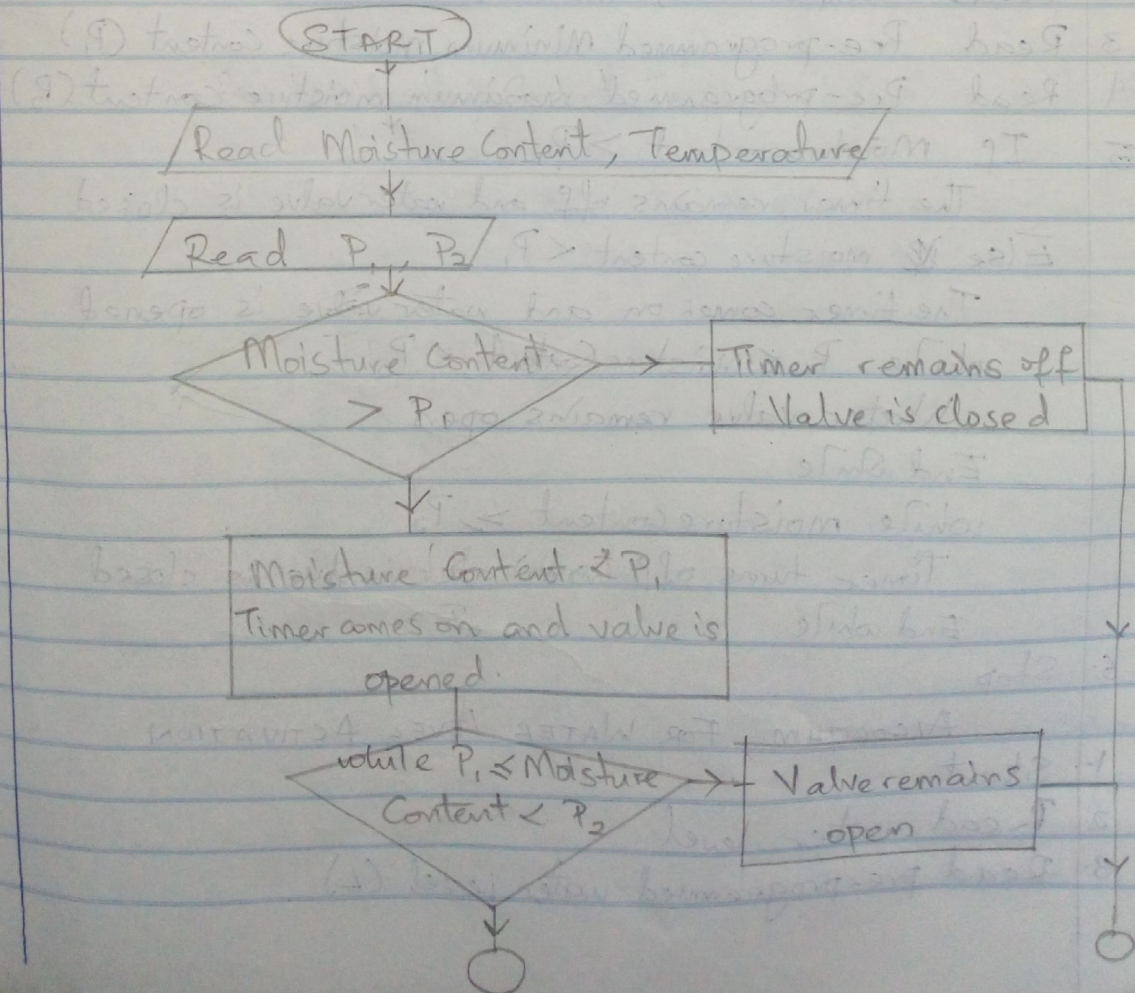 START
Read Moisture Content, Temperature
Read P₁, P₂
Moisture Content
> P₁
Timer remains off
Valve is closed
Moisture Content < P₁
Timer comes on and valve is
opened.
while P₁ ≤ Moisture
Content < P₂
Valve remains
open